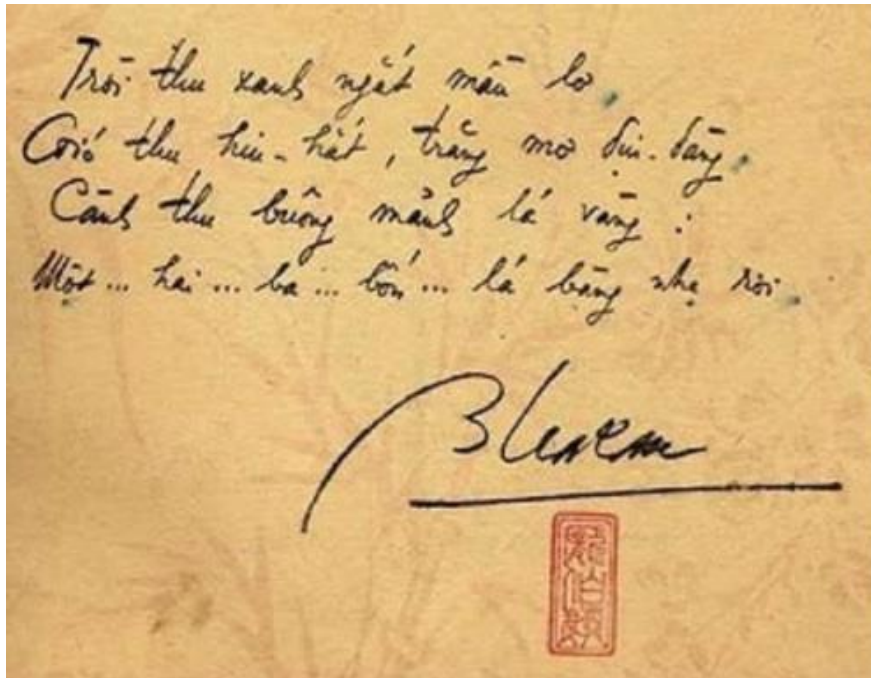 Trời thu xanh ngắt màu lơ,
Gió thu hiu-hắt, trăng mơ dịu-dàng,
Cành thu buông mảnh lá vàng :
Một ... hai ... ba ... bốn ... lá bàng nhẹ rơi.